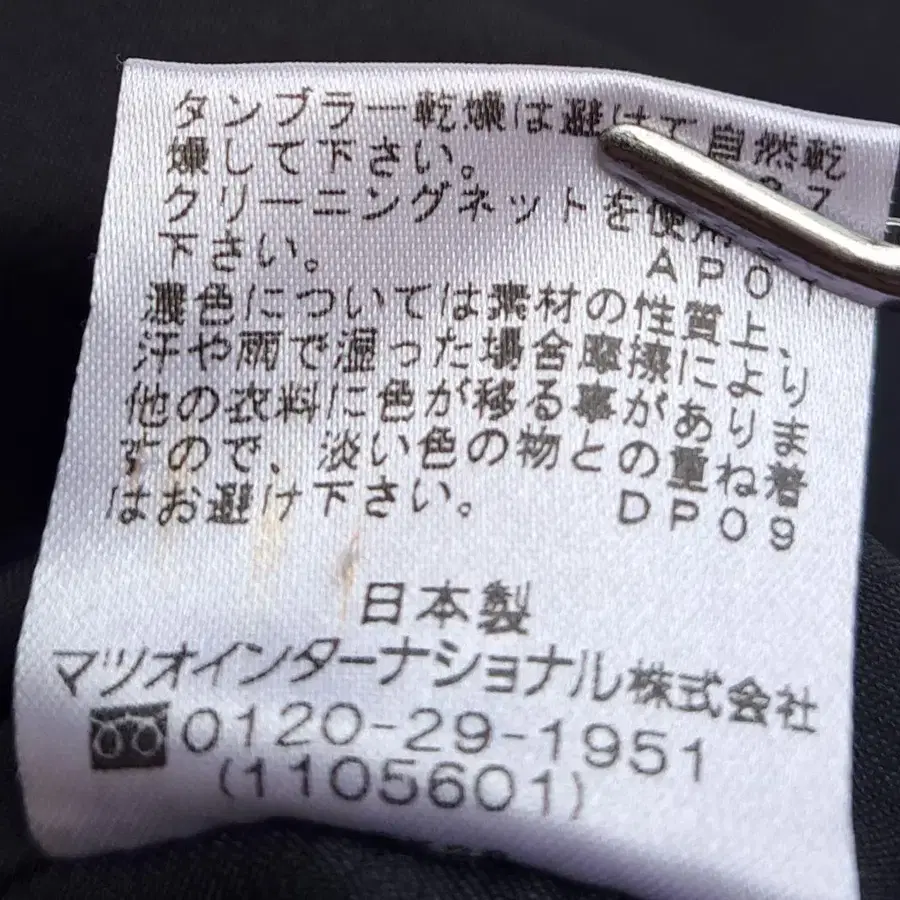 タンブラー乾燥は避けて自然乾
燥して下さい。 7
クリーニングネットを使用
下さい。 AP01
濃色については素材の性質上、
汗や雨で湿った場合摩擦により
他の衣料に色が移る事があります
ので、淡い色の物との重ね着
はお避け下さい。 DP09
日本製
マツオインターナショナル株式会社
0120-29-1951
(1105601)